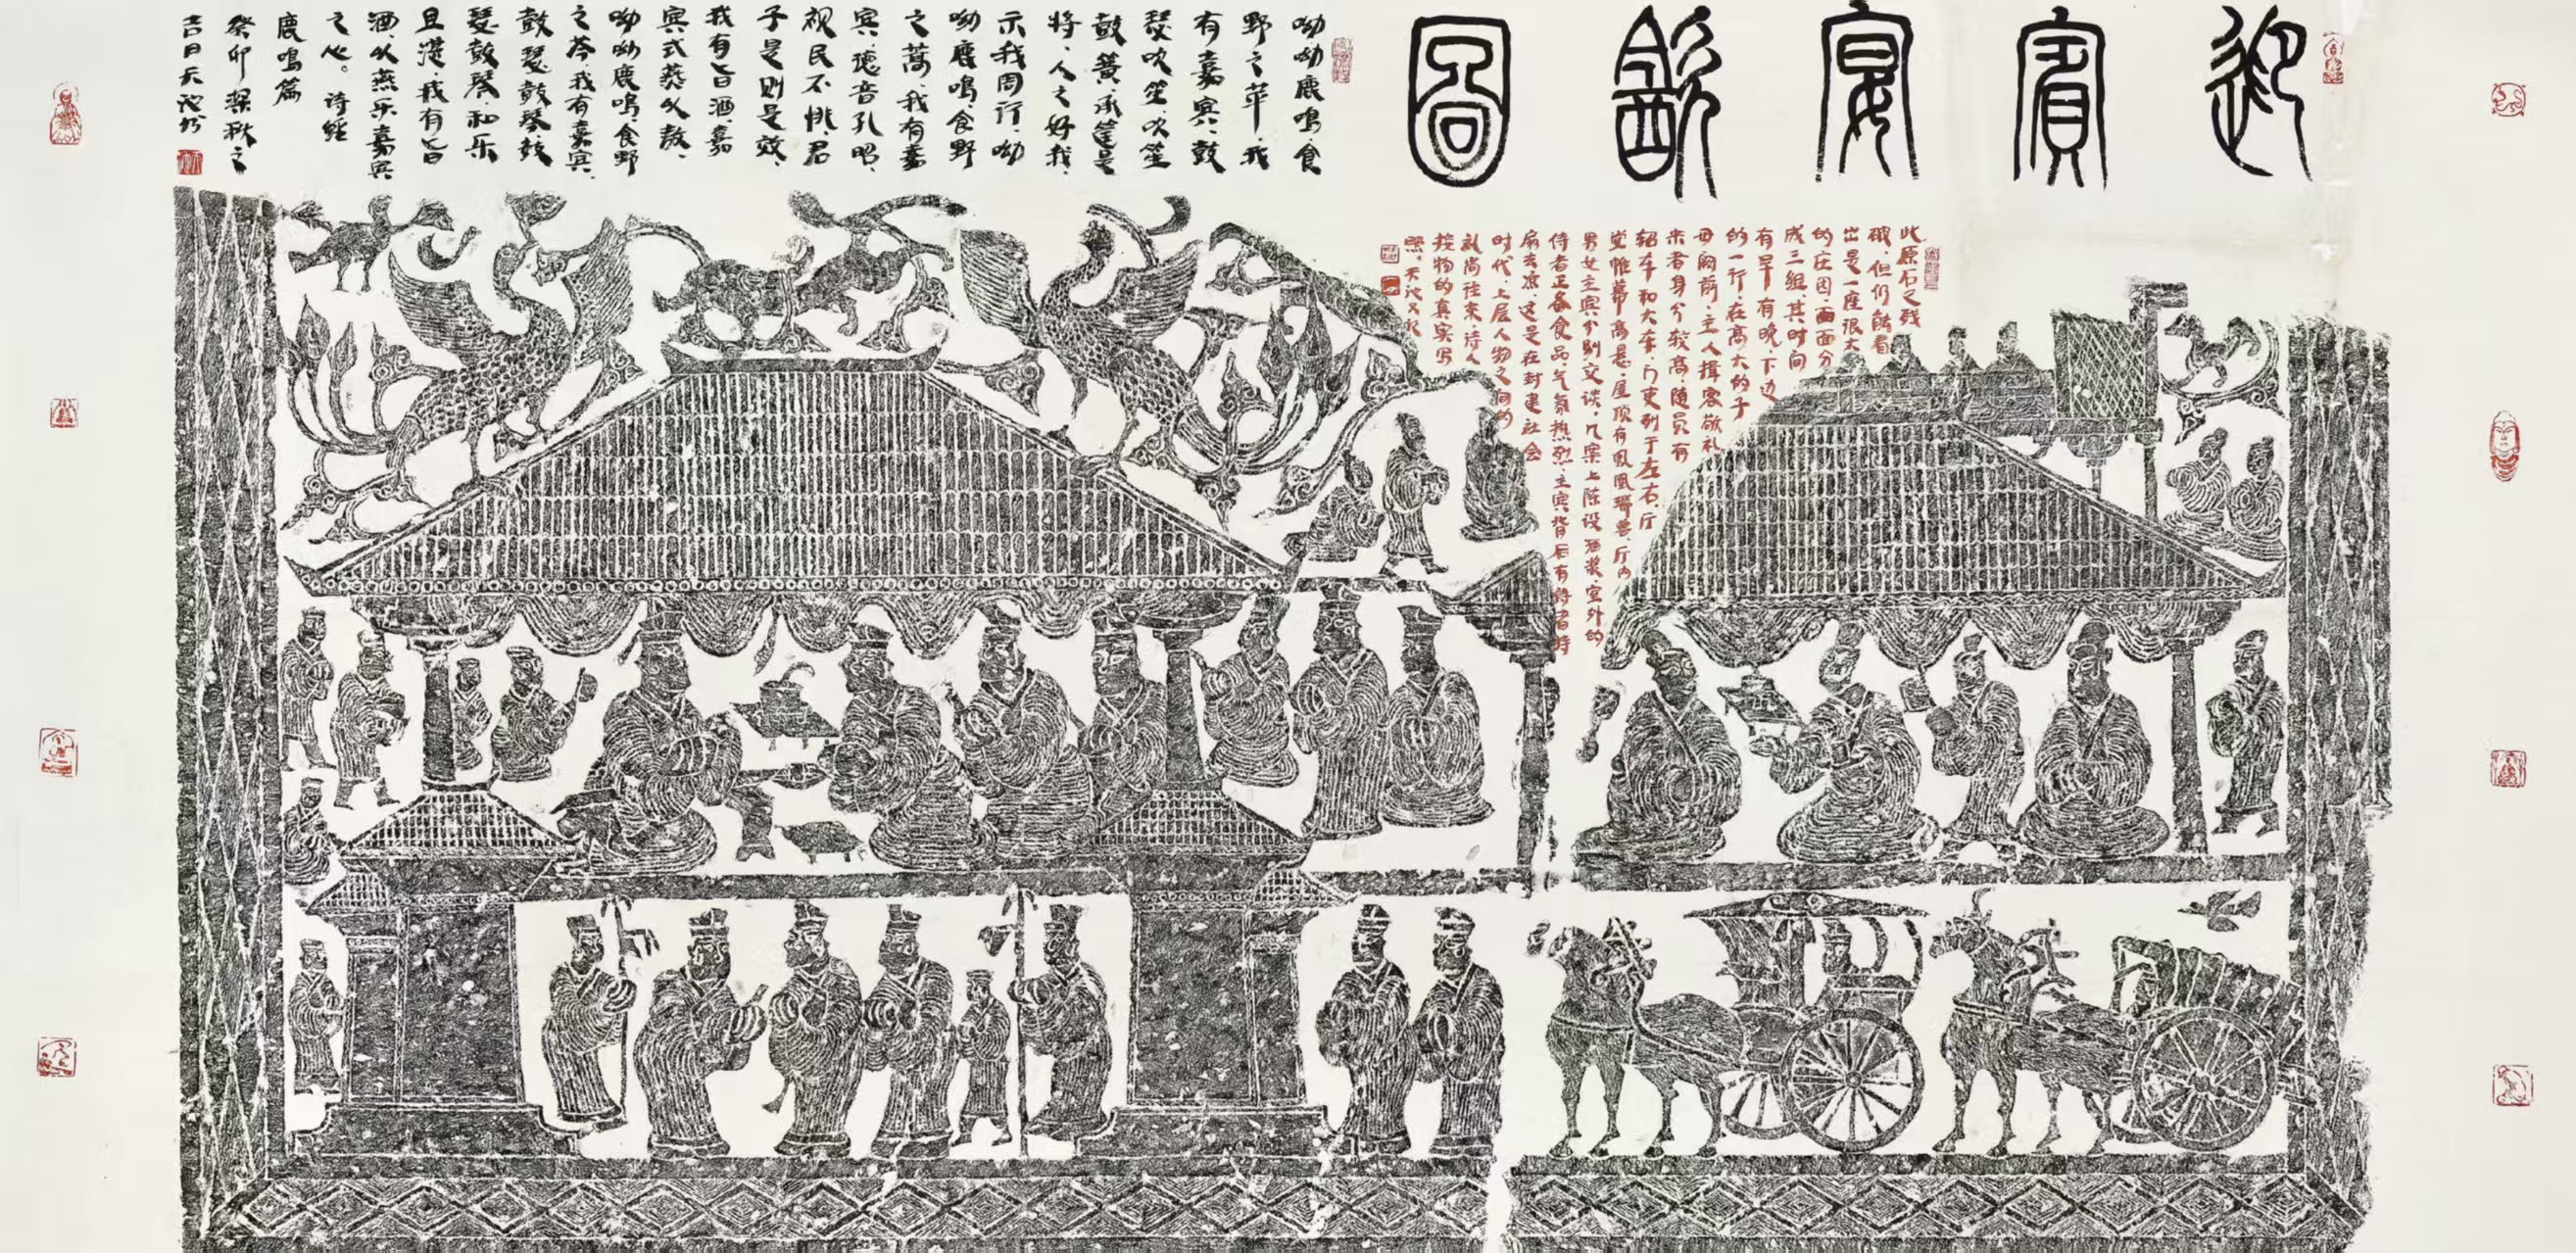 迎賓宴㱃圖
呦呦鹿鳴，食
野之苹，我
有嘉宾，鼓
瑟吹笙，吹笙
鼓簧，承筐是
将，人之好我，
示我周行，呦
呦鹿鳴，食野
之蒿，我有嘉
宾，德音孔昭，
视民不恌，君
子是则是效，
我有旨酒，嘉
宾式燕以敖，
呦呦鹿鳴，食野
之芩，我有嘉宾，
鼓瑟鼓琴，鼓
瑟鼓琴，和乐
且湛，我有旨
酒，以燕乐嘉宾
之心。诗经
鹿鳴篇
癸卯深秋之
吉日天池
此原石又残
破，但仍能看
出是一座很大
的庄园，画面分
成三组，其时间
有早有晚，下边
的一行，在高大的子
母阙前，主人揖客敬礼
来者身分较高，随员有
轺车和大车，门吏列于左右，厅
堂帷幕高悬，屋顶有凤凰瑞兽，厅内
男女主宾分别交谈，几案上陈设酒浆，室外的
侍者正备食品，气氛热烈，主宾背后有侍者持
扇去凉，这是在封建社会
时代，上层人物之间的
礼尚往来，待人
接物的真实写
照。天池又记